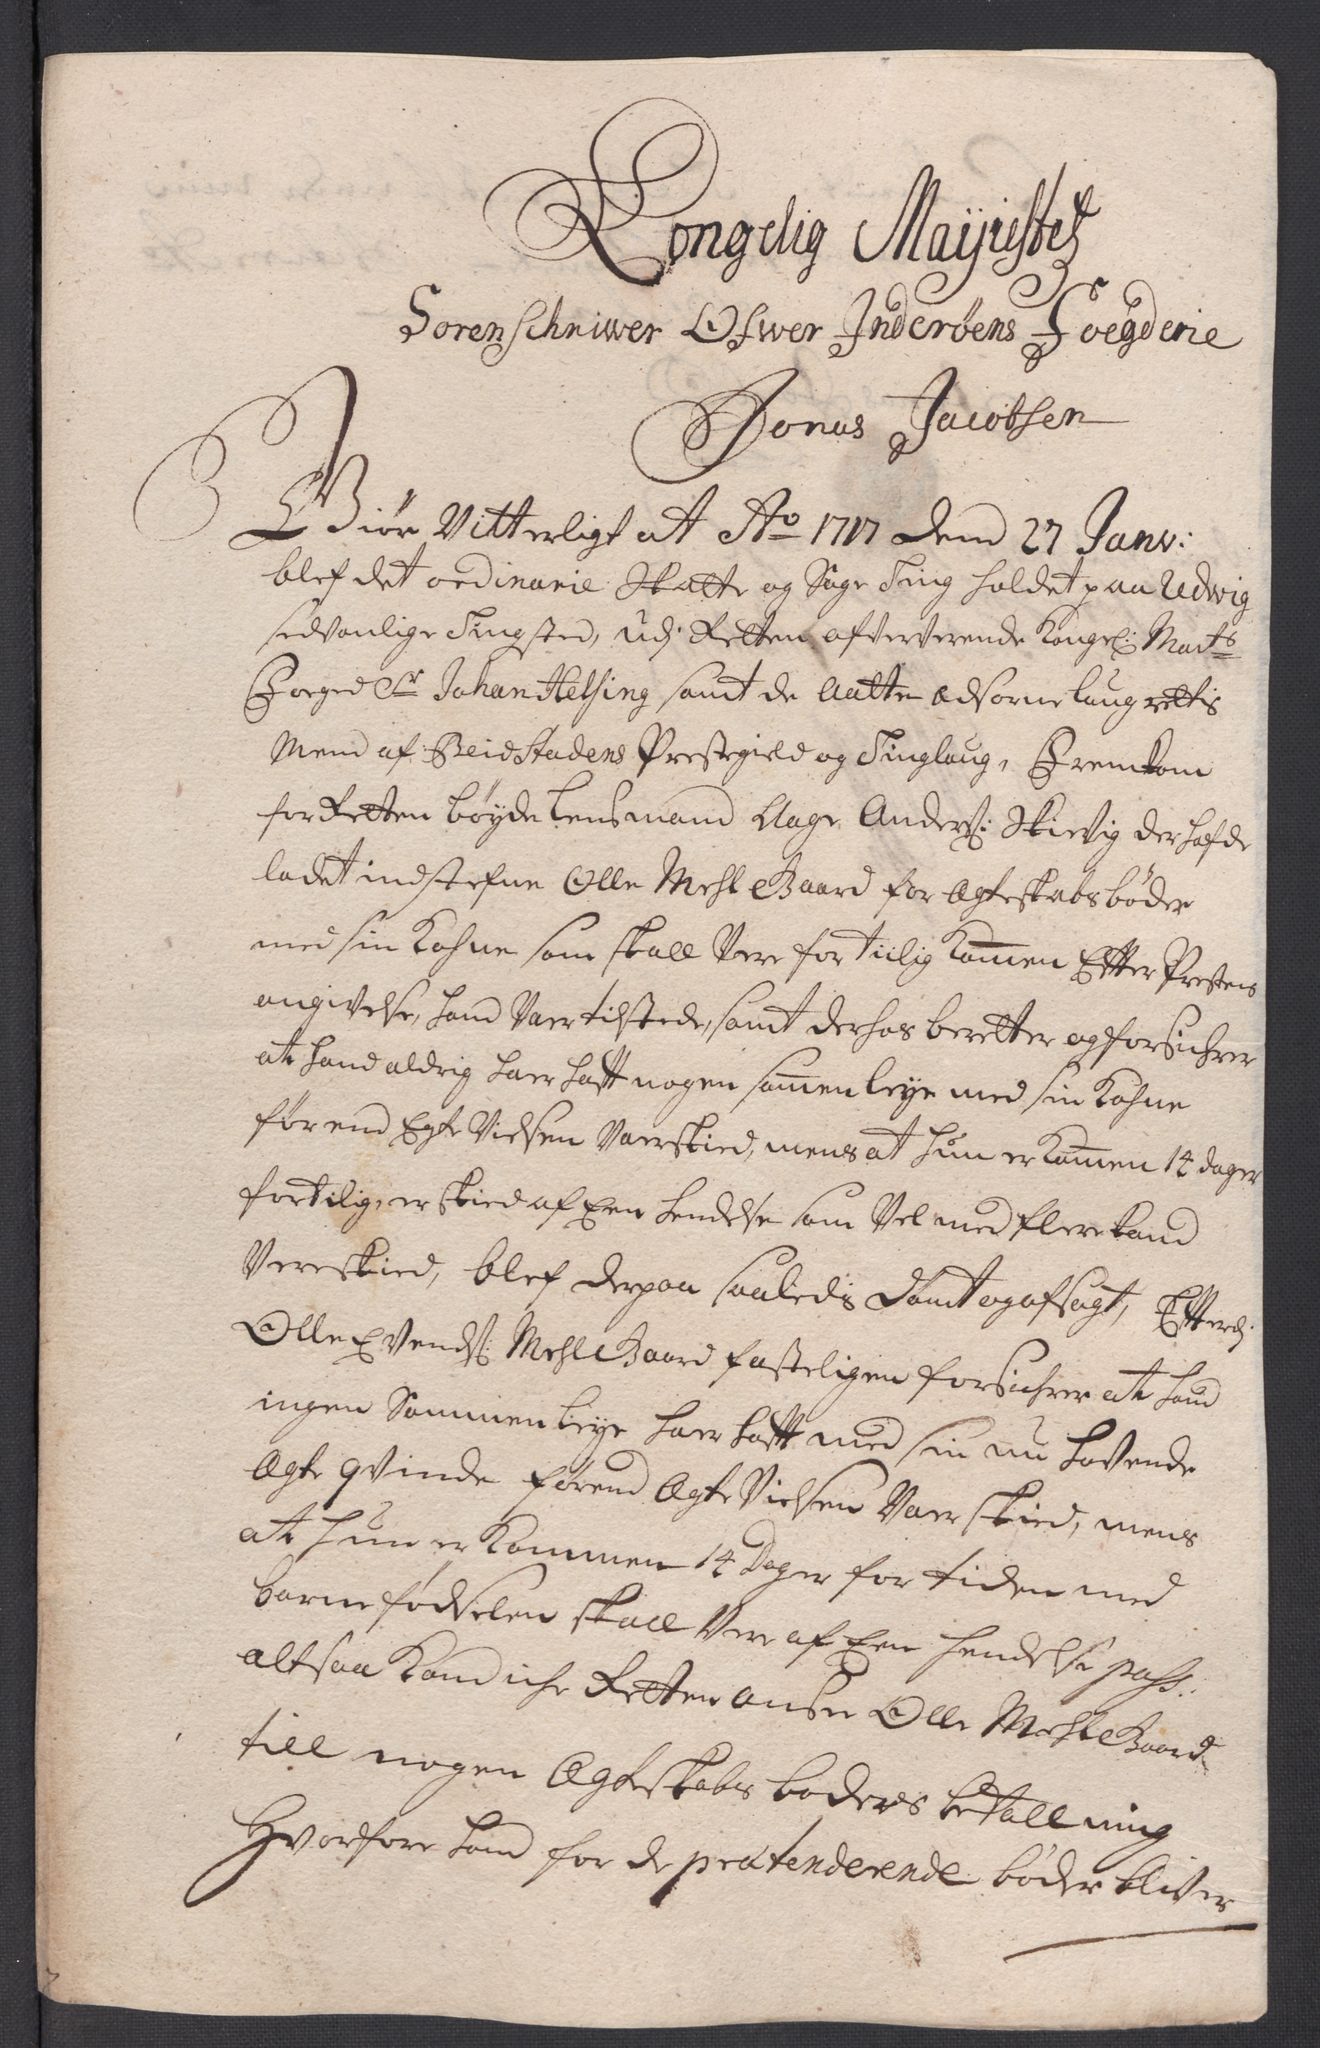 Kongelig Mayjestets
Sorenschriwer Ofwer Inderøens Foegderie
Jonas Jacobsen
Giør Vitterligt at Ao 1717 dend 27 Janv:
blef det ordinarie Skatte og Sage Ting holdet paa Udvig
sedvonlige Tingsted, udj Retten ofververende Kongel: Maits
Foeged Sr Johan Helsing samt de Aatte Edsorne laugrettis
Mend af Beidstadens Prestegield og Tinglaug, Fremkom
for Retten bøyde Lensmand Aage Anders: Skievig der hafde
ladet indstefne Olle Mehl Gaard for Egteskabsbøder
med sin Kohne som skall Vere for tiilig Kommen Efter Prestens
angivelse, hand Vaer tilstede, samt derhos beretter og forsichrer
at hand aldrig haer hafft nogen sammenleye med sin Kohne
førend Egte Vielsen Vaer skied, mens at hun er Kommen 14 dager
for tilig, er skied af Een hendelse som Vel med flere kand
Vere skied, blef derpaa saaledis dømt og afsagt, Efterdj
Olle Evends: Mehl Gaard fasteligen forsichrer at hand
ingen Sammenleye haer hafft med sin nu havende
Egte qvinde førend Egte Vielsen Vaer skied, mens
at hun er Kommen 14 Dager for tiden med
barnefødselen skall Vere af Een hendelse pass:
altsaa Kand iche Retten ansee Olle Mehl Gaard
till nogen Egteskabs bøders betallning
Hvorfore hand for de prætenderende bøder bliver